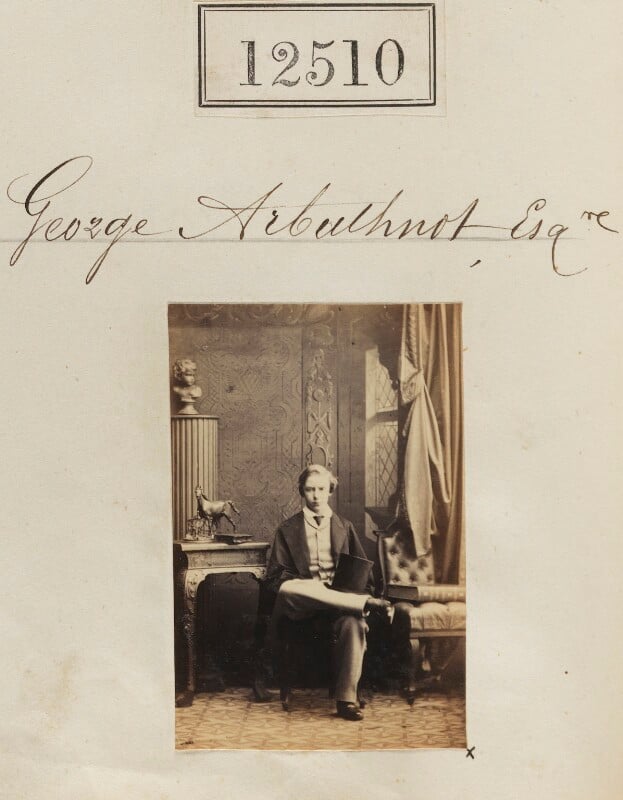 12510
George Arbuthnot Esqre
x